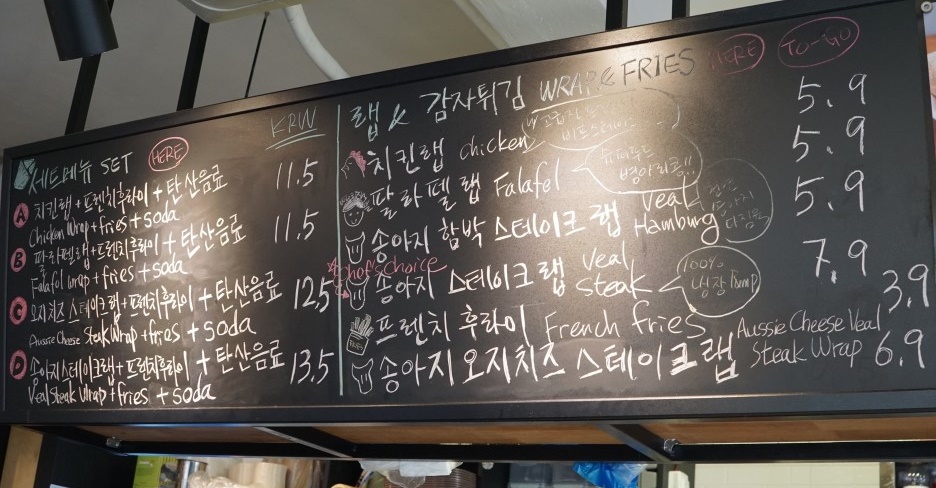 세트메뉴 SET HERE KRW
A 치킨랩+프렌치후라이+탄산음료 11.5
Chicken Wrap+fries+soda
B 팔라펠랩+프렌치후라이+탄산음료 11.5
Falafel wrap+fries+soda
C 오지치즈 스테이크랩+프렌치후라이+탄산음료 12.5
Aussie Cheese Steak Wrap+fries+soda
D 송아지스테이크랩+프렌치후라이+탄산음료 13.5
Veal Steak Wrap+fries+soda
랩 & 감자튀김 WRAP & FRIES HERE TO-GO
치킨랩 chicken 5.9
팔라펠랩 Falafel 5.9
병아리콩!!
송아지 함박 스테이크 랩 veal Hamburg 5.9
chef's choice
송아지 스테이크랩 veal steak 7.9
100%
냉장
프렌치 후라이 French fries 3.9
송아지오지치즈 스테이크랩 Aussie Cheese Veal
Steak Wrap 6.9